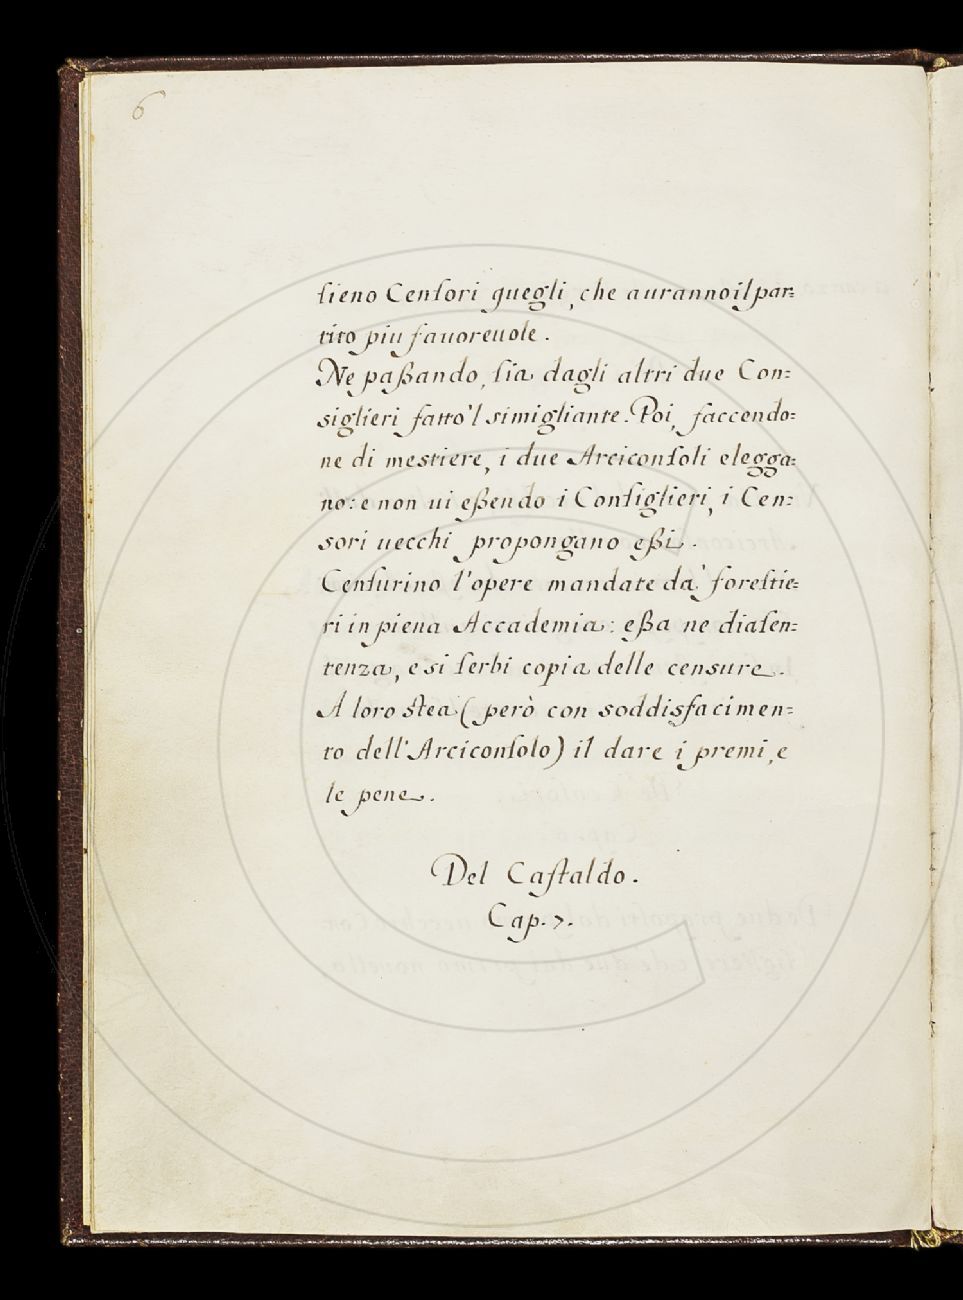 6
ſieno Cenſori quegli, che auranno il par=
tito piu fauoreuole.
Ne paßando, ſia dagli altri due Con=
siglieri fatto'l simigliante. Poi, faccendo=
ne di mestiere, i due Arciconſoli elegga=
no: e non ui eßendo i Conſiglieri, i Cen=
sori uecchi propongano eßi.
Cenſurino l'opere mandate da' foreſtie=
ri in piena Accademia: eßa ne dia ſen=
tenza, e si ſerbi copia delle censure.
A loro ſtea (però con soddisfacimen=
to dell'Arciconſolo) il dare i premi, e
le pene.
Del Caſtaldo.
Cap. 7.